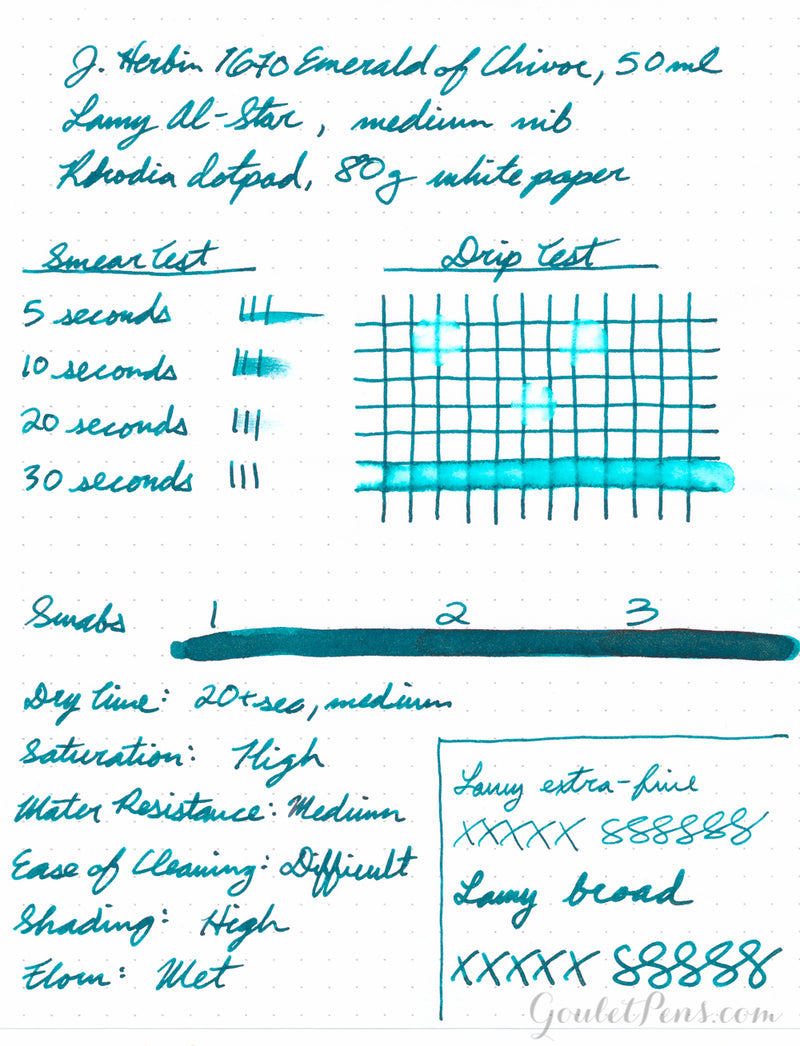 J. Herbin 1670 Emerald of Chivor, 50 ml
Lamy Al-Star, medium nib
Rhodia dotpad, 80g white paper
Smear Test
5 seconds
10 seconds
20 seconds
30 seconds
Drip Test
Swabs 1 2 3
Dry time: 20+ sec, medium
Saturation: High
Water Resistance: Medium
Ease of Cleaning: Difficult
Shading: High
Flow: Wet
Lamy extra-fine
xxxxx 888888
Lamy broad
xxxxx 88888
GouletPens.com